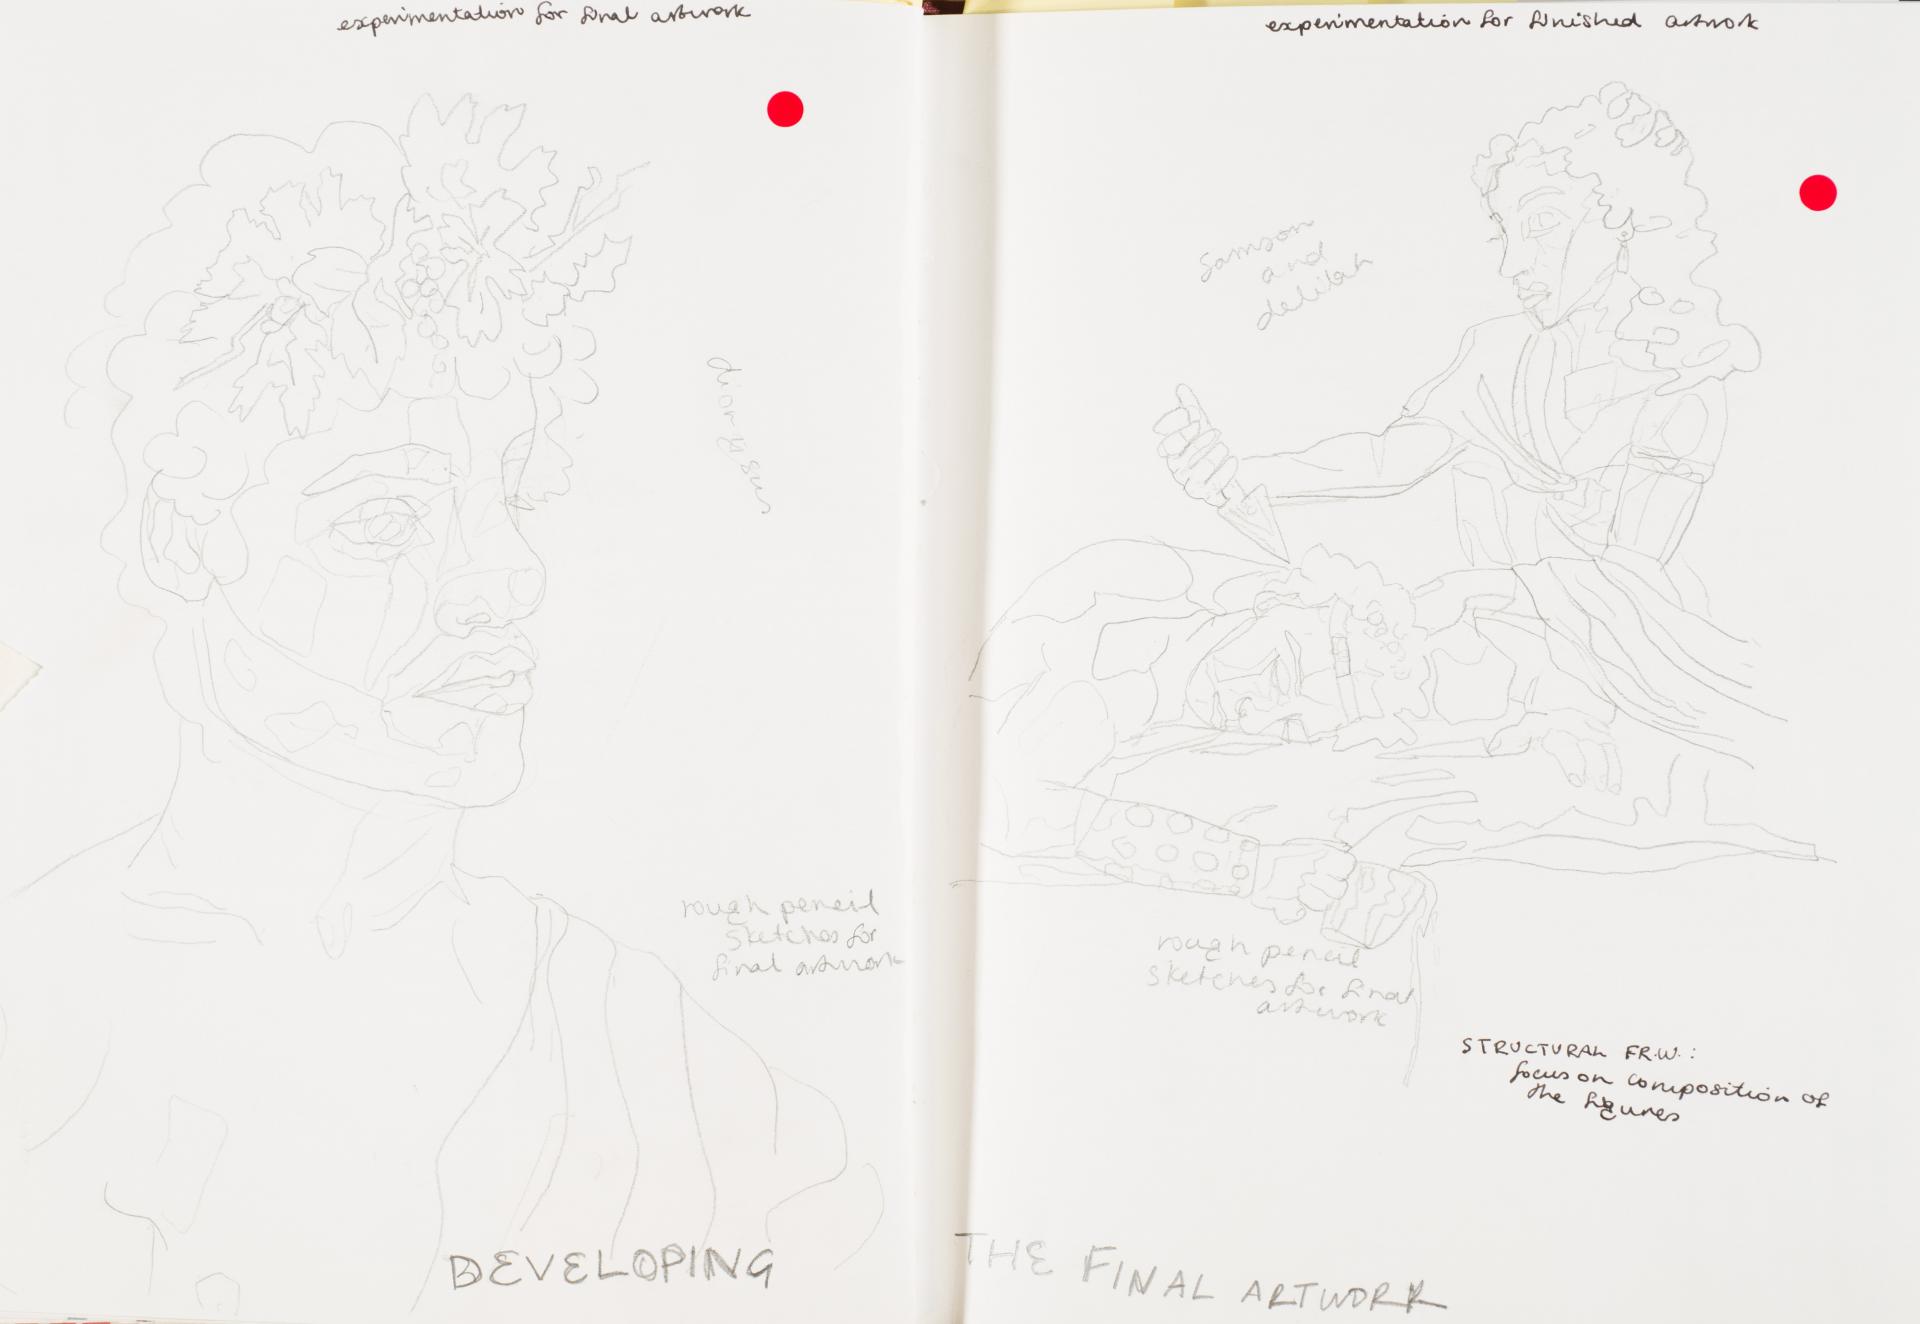 experimentation for final artwork
dionysus
rough pencil
sketches for
final artwork
DEVELOPING
experimentation for finished artwork
samson
and
delilah
rough pencil
sketches for final
artwork
STRUCTURAL FR.W. :
focus on composition of
the figures
THE FINAL ARTWORK